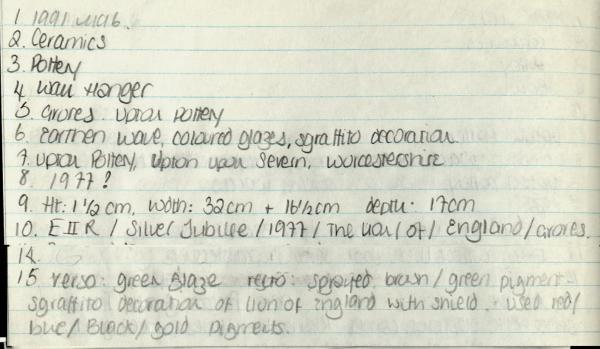 1 1991
2. Ceramics
3. Pottery
4. Wall Hanger
5. Grores. Upton Pottery
6. Earthen wave, coloured glazes, sgraffito decoration
7. Upton Pottery, Upton upon Severn, Worcestershire
8. 1977?
9. Ht: 1½cm, width: 32cm + 16½cm depth: 17cm
10. EIIR / Silver Jubilee / 1977 / The Lion / of / England / Grores.
14.
15. verso: green glaze recto: sprayed brown / green pigment -
sgraffito decoration of lion of England with shield. - used red /
blue / Black / gold pigments.